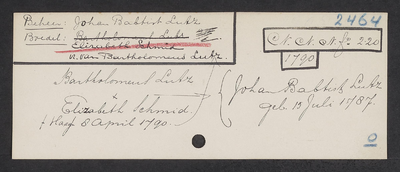 Beheer: Johan Babtist Lutz
2464
Bredel: Bartholomeus Lutz
Elizabeth Schmid
v. van Bartholomeus Lutz.
C. N. N. N. fo 220
1790
Bartholomeus Lutz
x
Elizabeth Schmid
8 April 1790.
Johan Babtist Lutz
geb. 13 Juli 1787
0